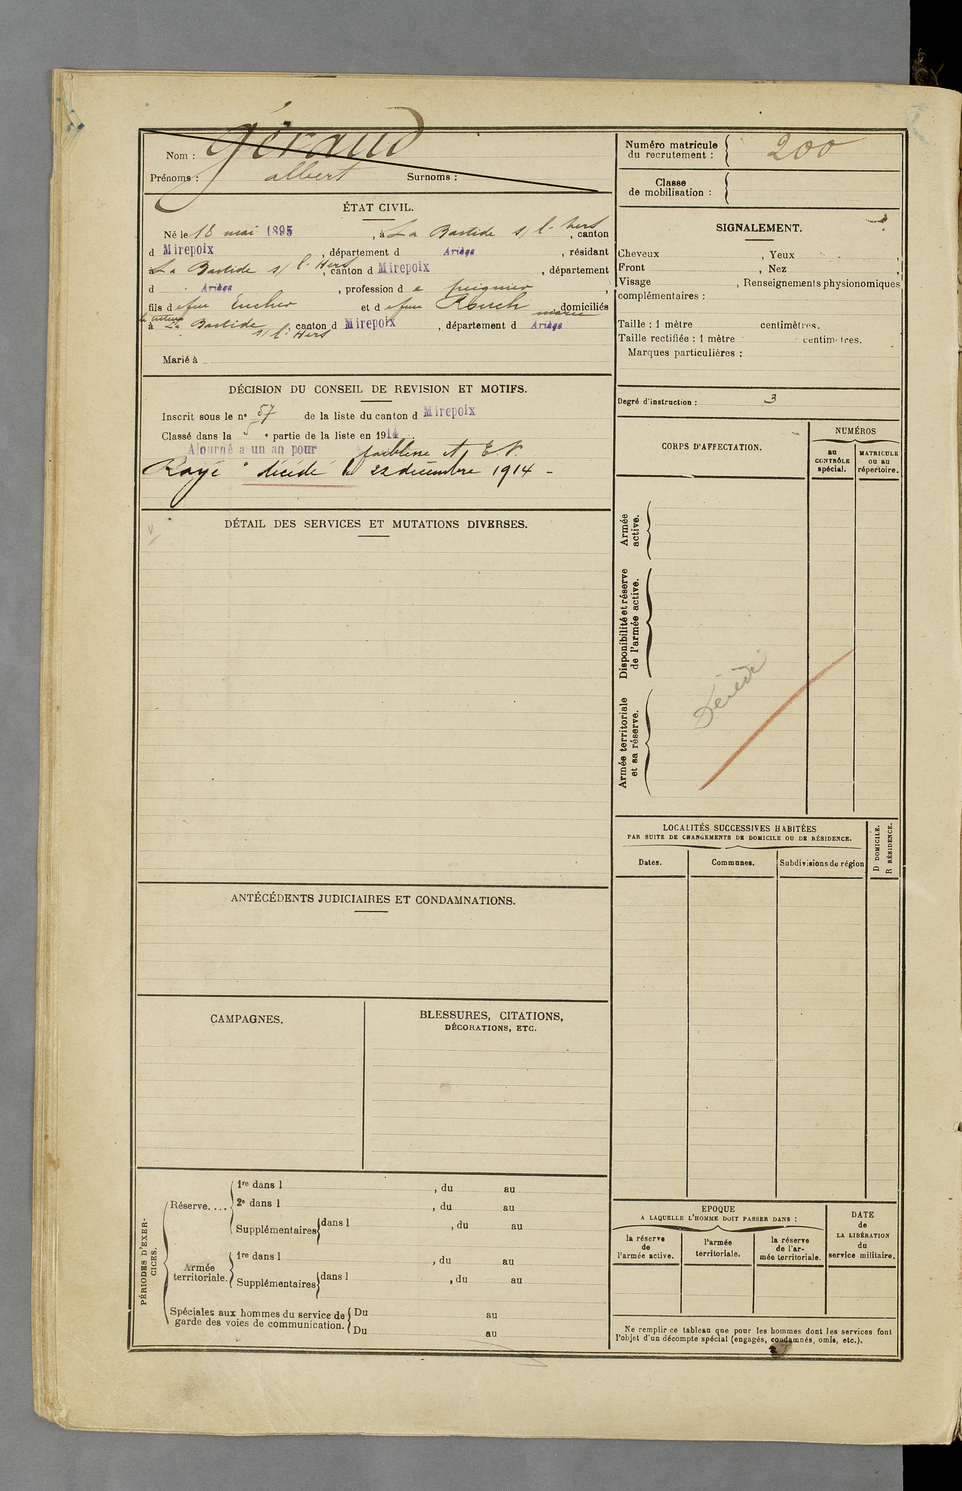 Nom : Géraud
Prénoms : albert Surnoms :
Numéro matricule du recrutement : 200
Classe de mobilisation :
ÉTAT CIVIL.
Né le 18 mai 1895, à La Bastide s/ l'hers, canton
d Mirepoix, département d Ariège, résidant
à La Bastide s/ l'Hers, canton d Mirepoix, département
d Ariège, profession d e peignier,
fils d e feu Eucher et d e feue Rouch marie domiciliés
à La Bastide s/ l'Hers canton d Mirepoix, département d Ariège
Marié à
SIGNALEMENT.
Cheveux , Yeux ,
Front , Nez ,
Visage , Renseignements physionomiques
complémentaires :
Taille : 1 mètre centimètres.
Taille rectifiée : 1 mètre centimètres.
Marques particulières :
Degré d'instruction : 3
DÉCISION DU CONSEIL DE REVISION ET MOTIFS.
Inscrit sous le n° 57 de la liste du canton d Mirepoix
Classé dans la 5e partie de la liste en 1914.
Ajourné a un an pour faiblesse
Rayé "décédé le 22 décembre 1914 -
CORPS D'AFFECTATION.
NUMÉROS
au CONTRÔLE spécial.
MATRICULE ou au répertoire.
Armée active.
Disponibilité et réserve de l'armée active.
Armée territoriale et sa réserve.
Décédé
DÉTAIL DES SERVICES ET MUTATIONS DIVERSES.
LOCALITÉS SUCCESSIVES HABITÉES
PAR SUITE DE CHANGEMENTS DE DOMICILE OU DE RÉSIDENCE.
Dates. Communes. Subdivisions de région
D DOMICILE.
R RÉSIDENCE.
ANTÉCÉDENTS JUDICIAIRES ET CONDAMNATIONS.
CAMPAGNES.
BLESSURES, CITATIONS,
DÉCORATIONS, ETC.
PÉRIODES D'EXERCICES.
Réserve....
1re dans l , du au
2e dans l , du au
Supplémentaires dans l , du au
Armée territoriale.
1re dans l , du au
Supplémentaires dans l , du au
Spéciales aux hommes du service de garde des voies de communication.
Du au
Du au
EPOQUE
A LAQUELLE L'HOMME DOIT PASSER DANS :
la réserve de l'armée active.
l'armée territoriale.
la réserve de l'armée territoriale.
DATE de LA LIBÉRATION du service militaire.
Ne remplir ce tableau que pour les hommes dont les services font
l'objet d'un décompte spécial (engagés, condamnés, omis, etc.).